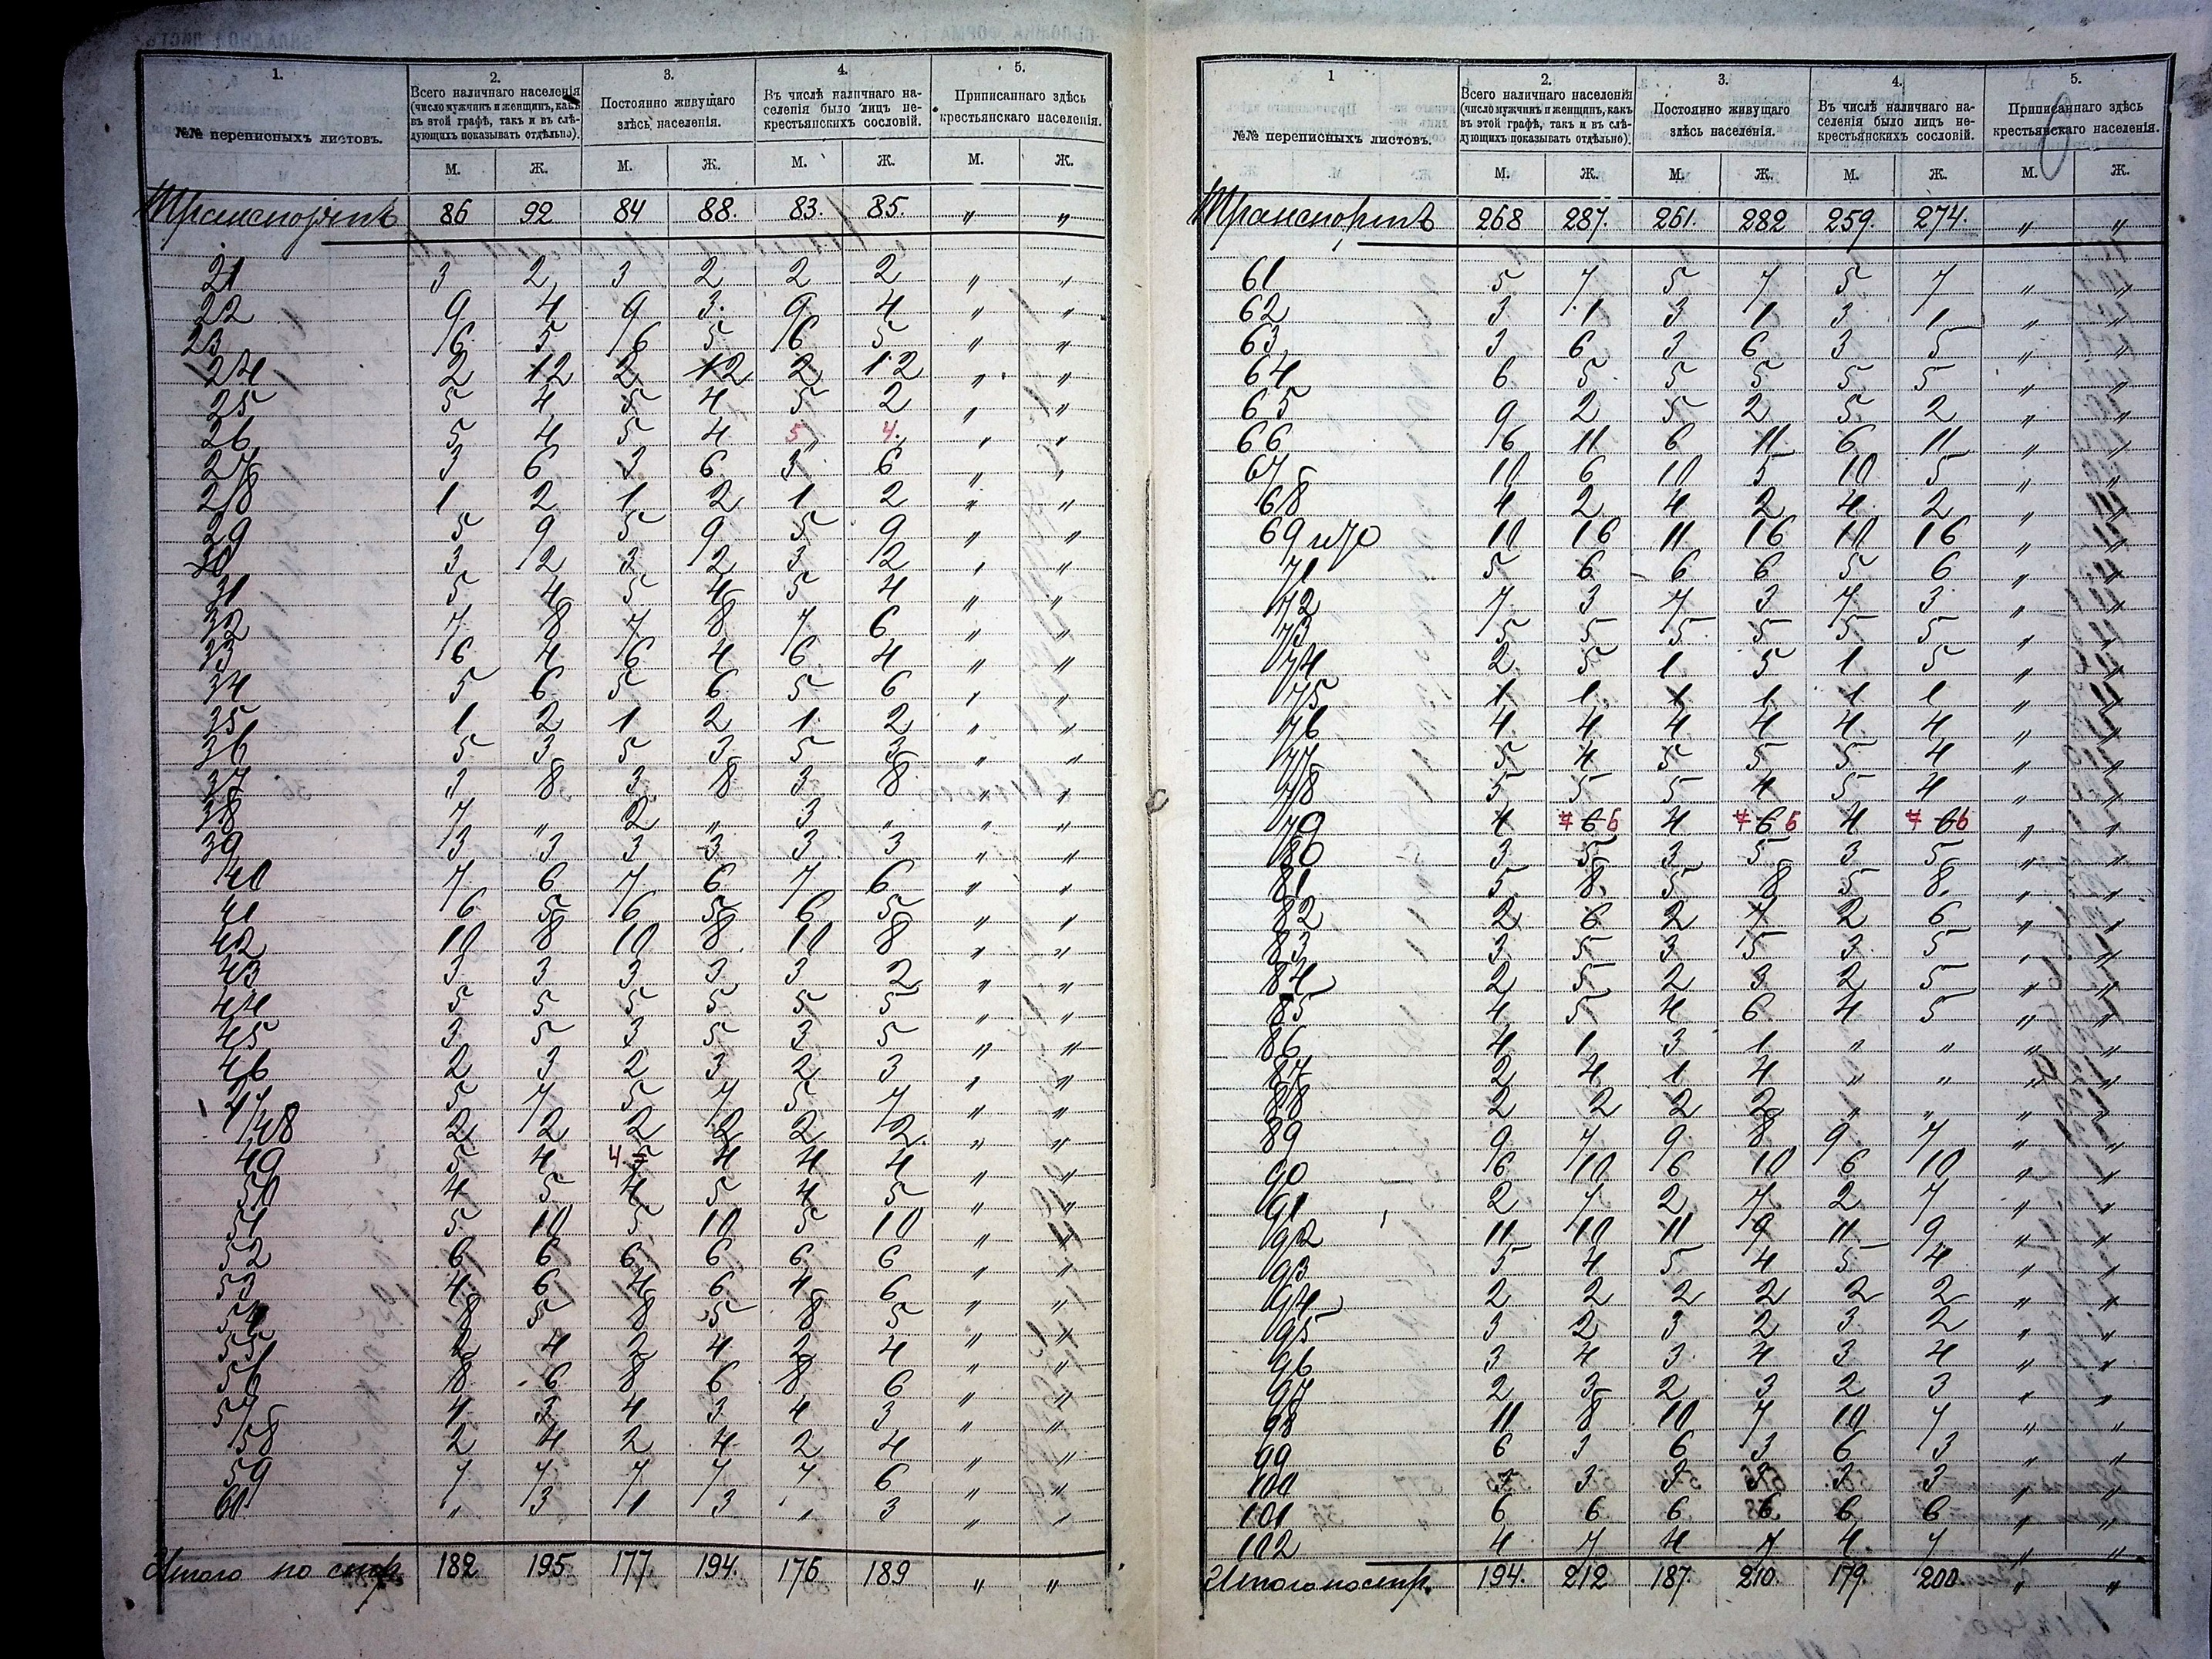 1. 2. 3. 4. 5.
№№ переписныхъ листовъ. Всего наличнаго населенія (число мужчинъ и женщинъ, какъ въ этой графѣ, такъ и въ слѣдующихъ показывать отдѣльно). Постоянно живущаго здѣсь населенія. Въ числѣ наличнаго населенія было лицъ некрестьянскихъ сословій. Приписаннаго здѣсь крестьянскаго населенія.
М. Ж. М. Ж. М. Ж. М. Ж.
Транспортъ 86 92 84 88. 83. 85. " "
21 3 2 3 2 2 2 " "
22 9 4 9 3. 9 4 " "
23 6 5 6 5 6 5 " "
24 2 12 2 12 2 12 " "
25 5 4 5 4 5 2 " "
26 5 4 5 4 5 4 " "
27 3 6 3 6 3 6 " "
28 1 2 1 2 1 2 " "
29 5 9 5 9 5 9 " "
30 3 2 3 2 3 2 " "
31 5 4 5 4 5 4 " "
32 7 8 7 8 7 6 " "
33 6 4 6 4 6 4 " "
34 5 6 5 6 5 6 " "
35 1 2 1 2 1 2 " "
36 5 3 5 3 5 3 " "
37 3 8 3 8 3 8 " "
38 7 " 2 " 3 " " "
39 3 3 3 3 3 3 " "
40 7 6 7 6 7 6 " "
41 6 5 6 5 6 5 " "
42 10 8 10 8 10 8 " "
43 3 3 3 3 3 2 " "
44 5 5 5 5 5 5 " "
45 3 5 3 5 3 5 " "
46 2 3 2 3 2 3 " "
47 5 7 5 7 5 7 " "
48 2 2 2 2 2 2 " "
49 5 4 4 5 4 4 4 " "
50 4 5 4 5 4 5 " "
51 5 10 5 10 5 10 " "
52 6 6 6 6 6 6 " "
53 4 6 4 6 4 6 " "
54 8 5 8 5 8 5 " "
55 2 4 2 4 2 4 " "
56 8 6 8 6 8 6 " "
57 4 3 4 3 4 3 " "
58 2 4 2 4 2 4 " "
59 7 7 7 7 7 6 " "
60 " 3 1 3 " 3 " "
Итого по стр. 182 195 177 194. 176 189 " "
1 2. 3. 4. 5.
№№ переписныхъ листовъ. Всего наличнаго населенія (число мужчинъ и женщинъ, какъ въ этой графѣ, такъ и въ слѣдующихъ показывать отдѣльно). Постоянно живущаго здѣсь населенія. Въ числѣ наличнаго населенія было лицъ некрестьянскихъ сословій. Приписаннаго здѣсь крестьянскаго населенія.
М. Ж. М. Ж. М. Ж. М. Ж.
Транспортъ 268 287. 261. 282 259. 274. " "
61 5 7 5 7 5 7 " "
62 3 1 3 1 3 1 " "
63 3 6 3 6 3 5 " "
64 6 5 5 5 5 5 " "
65 9 2 5 2 5 2 " "
66 6 11 6 11 6 11 " "
67 10 6 10 5 10 5 " "
68 4 2 4 2 4 2 " "
69 и 70 10 16 11 16 10 16 " "
71 5 6 6 6 5 6 " "
72 7 3 7 3 7 3 " "
73 5 5 5 5 5 5 " "
74 2 5 1 5 1 5 " "
75 1 1 1 1 1 1 " "
76 4 4 4 4 4 4 " "
77 5 4 5 5 5 4 " "
78 5 5 5 4 5 4 " "
79 4 7 6 6 4 7 6 6 4 7 6 6 " "
80 3 5 3 5 3 5 " "
81 5 8 5 8 5 8 " "
82 2 6 2 7 2 6 " "
83 3 5 3 5 3 5 " "
84 2 5 2 3 2 5 " "
85 4 5 4 6 4 5 " "
86 4 1 3 1 " " " "
87 2 4 1 4 " " " "
88 2 2 2 2 " " " "
89 9 7 9 8 9 7 " "
90 6 10 6 10 6 10 " "
91 2 7 2 7 2 7 " "
92 11 10 11 9 11 9 " "
93 5 4 5 4 5 4 " "
94 2 2 2 2 2 2 " "
95 3 2 3 2 3 2 " "
96 3 4 3 4 3 4 " "
97 2 3 2 3 2 3 " "
98 11 8 10 7 10 7 " "
99 6 3 6 3 6 3 " "
100 3 3 3 3 3 " "
101 6 6 6 6 6 6 " "
102 4 7 4 7 4 7 " "
Итого по стр. 194. 212 187. 210. 179. 200 " "